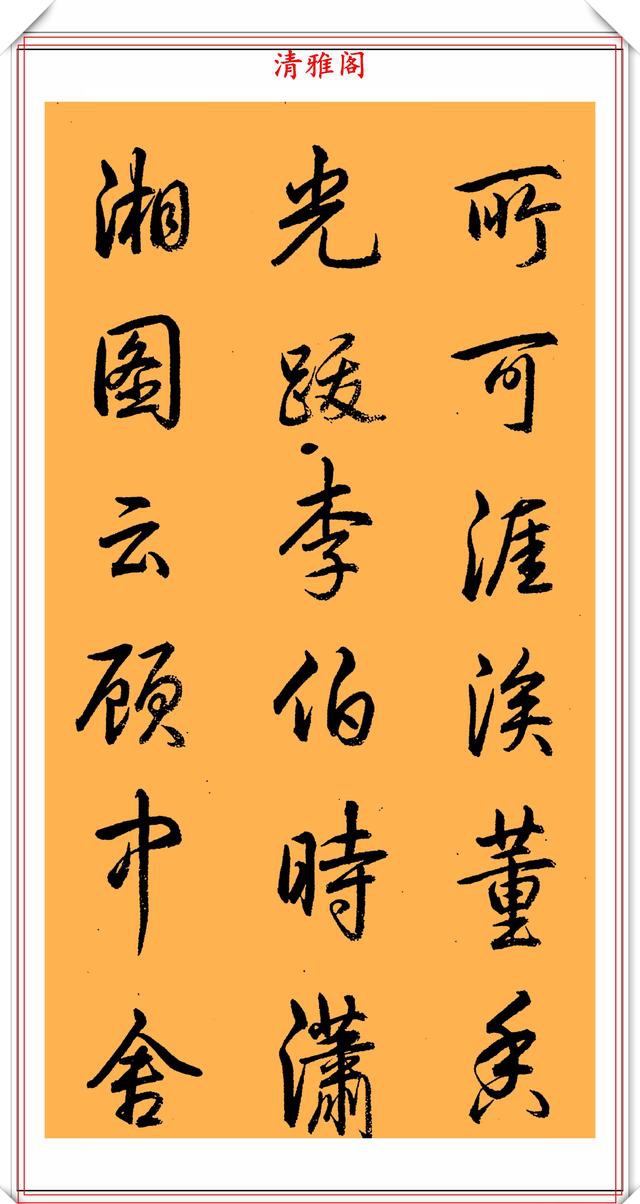 清雅阁
所可涯涘董香
光跋李伯時瀟
湘图云顾中舍